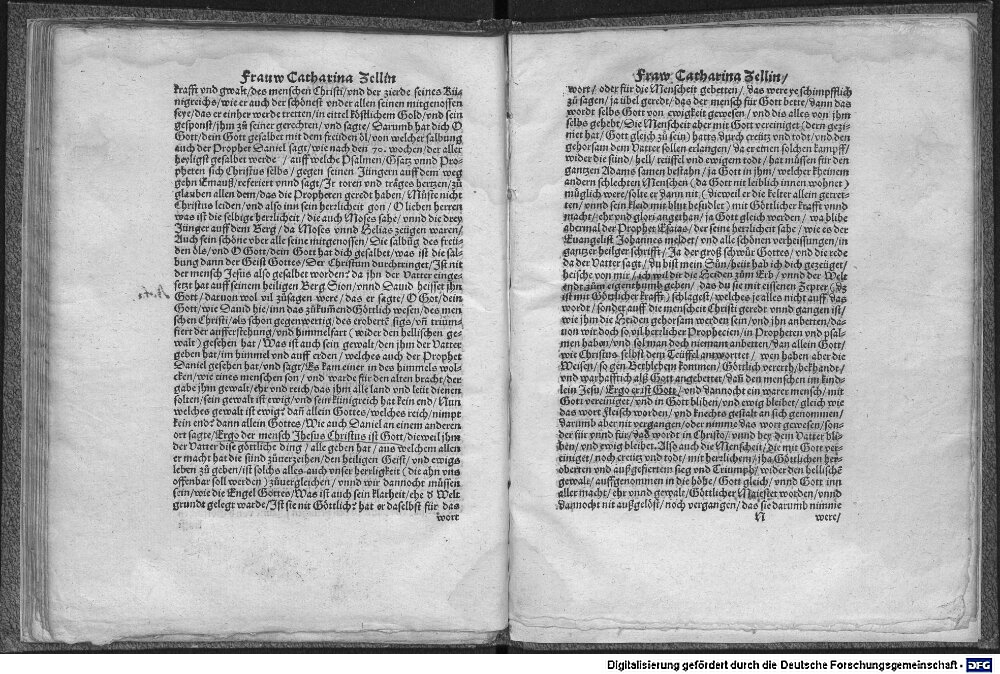 Frauw Catharina Zellin
krafft vnd gwalt/des menschen Christi/vnd der zierde seines Kü-
nigreichs/wie er auch der schönest vnder allen seinen mitgenossen
seye/das er einher werde tretten/in eittel köstlichem Gold/vnd sein
gesponß/jhm zů seiner gerechten/vnd sagte/Darumb hat dich O
Gott/dein Gott gesalbet mit dem freüden öl/von welcher salbung
auch der Prophet Daniel sagt/wie nach den 70. wochen/der aller
heyligst gesalbet werde/auff welche Psalmen/Gsatz vnnd Pro-
pheten sich Christus selbs/gegen seinen Jüngern auff dem weg
gehn Emauß/referiert vnnd sagt/Ir toren vnd träges hertzen/zů
glauben allen dem/das die Propheten geredt haben/Müste nicht
Christus leiden/vnd also inn sein herrlicheit gon/O lieben herren
was ist die selbige herrlicheit/die auch Moses sahe/vnnd die drey
Jünger auff dem Berg/da Moses vnnd Helias zeügen waren/
Auch sein schöne vber alle seine mitgenossen/Die salbũg des freü-
den öls/vnd O Gott/dein Gott hat dich gesalbet/was ist die sal-
bung dann der Geist Gottes/Der Christum durchtringet/Ist nit
der mensch Jesus also gesalbet worden? da jhn der Vatter einge-
setzt hat auff seinen heiligen Berg Sion/vnnd Dauid heisset jhn
Gott/daruon wol vil zůsagen were/das er sagte/O Got/dein
Gott/wie Dauid hie/inn das zůkumend Göttlich wesen/des men-
schen Christi/als schon gegenwertig/des eroberte sigs/vñ triüm-
fiert der aufferstehung/vnd himmelfart (wider den hellischen ge-
walt) gesehen hat/Was ist auch sein gewalt/den jhm der Vatter
geben hat/im himmel vnd auff erden/welches auch der Prophet
Daniel gesehen hat/vnd sagt/Es kam einer in des himmels wol-
cken/wie eines menschen son/vnd warde für den alten bracht/der
gabe jhm gewalt/ehr vnd reich/das jhn alle land vnd leüt dienen
solten/sein gewalt ist ewig/vnd sein künigreich hat kein end/Nun
welches gewalt ist ewig? dañ allein Gottes/welches reich/nimpt
kein end? dann allein Gottes/Wie auch Daniel an einem anderen
ort sagte/Ergo der mensch Jhesus Christus ist Gott/dieweil jhm
der Vatter dise göttliche ding/alle geben hat/aus welchem allen
er macht hat die sünd zůuerzeihen/den heiligen Geist/vnd ewigs
leben zů geben/ist solchs alles auch vnser herrligkeit (die ahn vns
offenbar soll werden) zůuergleichen/vnnd wir dannocht müssen
sein/wie die Engel Gottes/Was ist auch sein klarheit/ehe d Welt
grundt gelegt warde/Ist sie nit Göttlich? hat er daselbst für das
wort
Fraw Catharina Zellin/
wort/oder für die Menscheit gebetten/das were ye schimpfflich
zů sagen/ja übel geredt/das der mensch für Gott bette/dann das
wordt selbs Gott von ewigkeit gewesen/vnd dis alles von jhm
selbs gehebt/Die Menscheit aber mit Gott vereiniget (dern gezi-
met hat/Gott gleich zů sein) hatts durch creütz vnd todt/vnd den
gehorsam dem Vatter sollen erlangen/da er einen solchen kampff/
wider die sünd/hell/teüffel vnd ewigem todt/hat müssen für den
gantzen Adams samen bestahn/ja Gott in jhm/welcher kheinem
andern schlechten Menschen (da Gott nit leiblich innen wohnet)
müglich were/solte er dann nit (dieweil er die kelter allein getret-
ten/vnnd sein kleid mit blut besudlet) mit Göttlicher krafft vnnd
macht/ehr vnd glori angethan/ja Gott gleich werden/wa blibe
abermal der Prophet Esaias/der seine herrlicheit sahe/wie es der
Euangelist Johannes meldet/vnd alle schönen verheissungen/in
gantzer heiliger schrifft/Ja der groß schwůr Gottes/vnd die rede
da der Vatter sagt/du bist mein Sůn/heüt hab ich dich gezeüget/
heische von mir/ich wil dir die Heiden zům Erb/vnnd der Welt
endt zům eigenthumb geben/das du sie mit eisenen Zepter (das
ist mit Göttlicher krafft) schlagest/welches je alles nicht auff das
wordt/sonder auff die menscheit Christi geredt vnnd gangen ist/
wie jhm die Heiden gehorsam werden sein/vnd jhn anbetten/da-
uon wir doch so vil herzlicher Prophecien/in Propheten vnd psal-
men haben/vnd sol man doch niemant anbetten/dan allein Gott/
wie Christus selbst dem Teüffel antwortet/wen haben aber die
Weisen/so gen Bethlehem kommen/Göttlich vererth/bekhandt/
vnd warhafftich alß Gott angebettet/dañ den menschen im kind-
lein Jesu/Ergo er ist Gott/vnd dannocht ein warer mensch/mit
Gott vereiniget/vnd in Gott bliben/vnd ewig bleibet/gleich wie
das wort fleisch worden/vnd knechts gestalt an sich genommen/
darumb aber nit vergangen/oder nimme das wort gewesen/son-
der für vnnd für/das wordt in Christo/vnnd bey dem Vatter bli-
ben/vnd ewig bleibet. Also auch die Menscheit/die mit Gott ver-
einiget/noch creütz vnd todt/mit herrlichem/jha Göttlichen her-
oberten vnd außgefiertem sieg vnd Triumph/wider den hellischẽ
gewalt/auffgenommen in die höhe/Gott gleich/vnnd Gott inn
aller macht/ehr vnnd gewalt/Göttlicher Maiestet worden/vnnd
dannocht nit außgelöst/noch vergangen/das sie darumb nimme
N were/
Digitalisierung gefördert durch die Deutsche Forschungsgemeinschaft - DFG